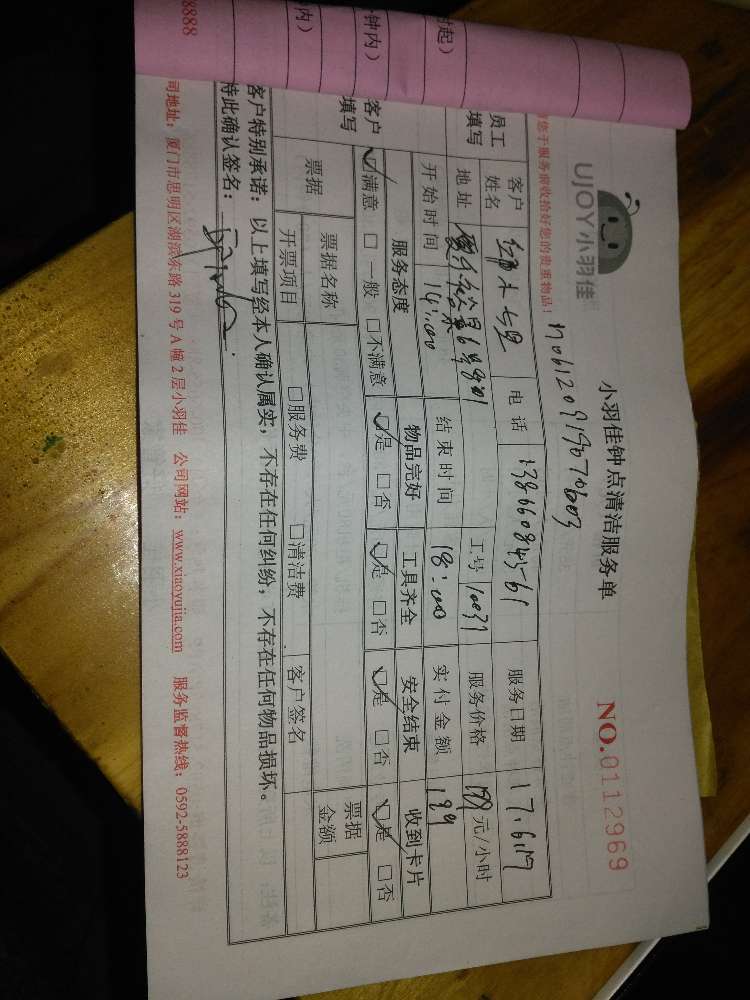 UJOY小羽佳
小羽佳钟点清洁服务单
NO.0112969
您于服务前收拾好您的贵重物品!
员工填写
客户姓名
电话
服务日期 17.6.17
地址
工号 10037
服务价格 199 元/小时
开始时间 14:00
结束时间 18:00
实付金额 199
客户填写
服务态度 物品完好 工具齐全 安全结束 收到卡片
☑满意 □一般 □不满意 ☑是 □否 ☑是 □否 ☑是 □否 ☑是 □否
票据
票据名称
票据金额
开票项目 □服务费 □清洁费 客户签名
客户特别承诺:以上填写经本人确认属实,不存在任何纠纷,不存在任何物品损坏。
特此确认签名:
司地址:厦门市思明区湖滨东路 319 号 A 幢 2 层小羽佳 公司网站:www.xiaoyujia.com 服务监督热线:0592-5888123
时起)
钟内)
内)
8888